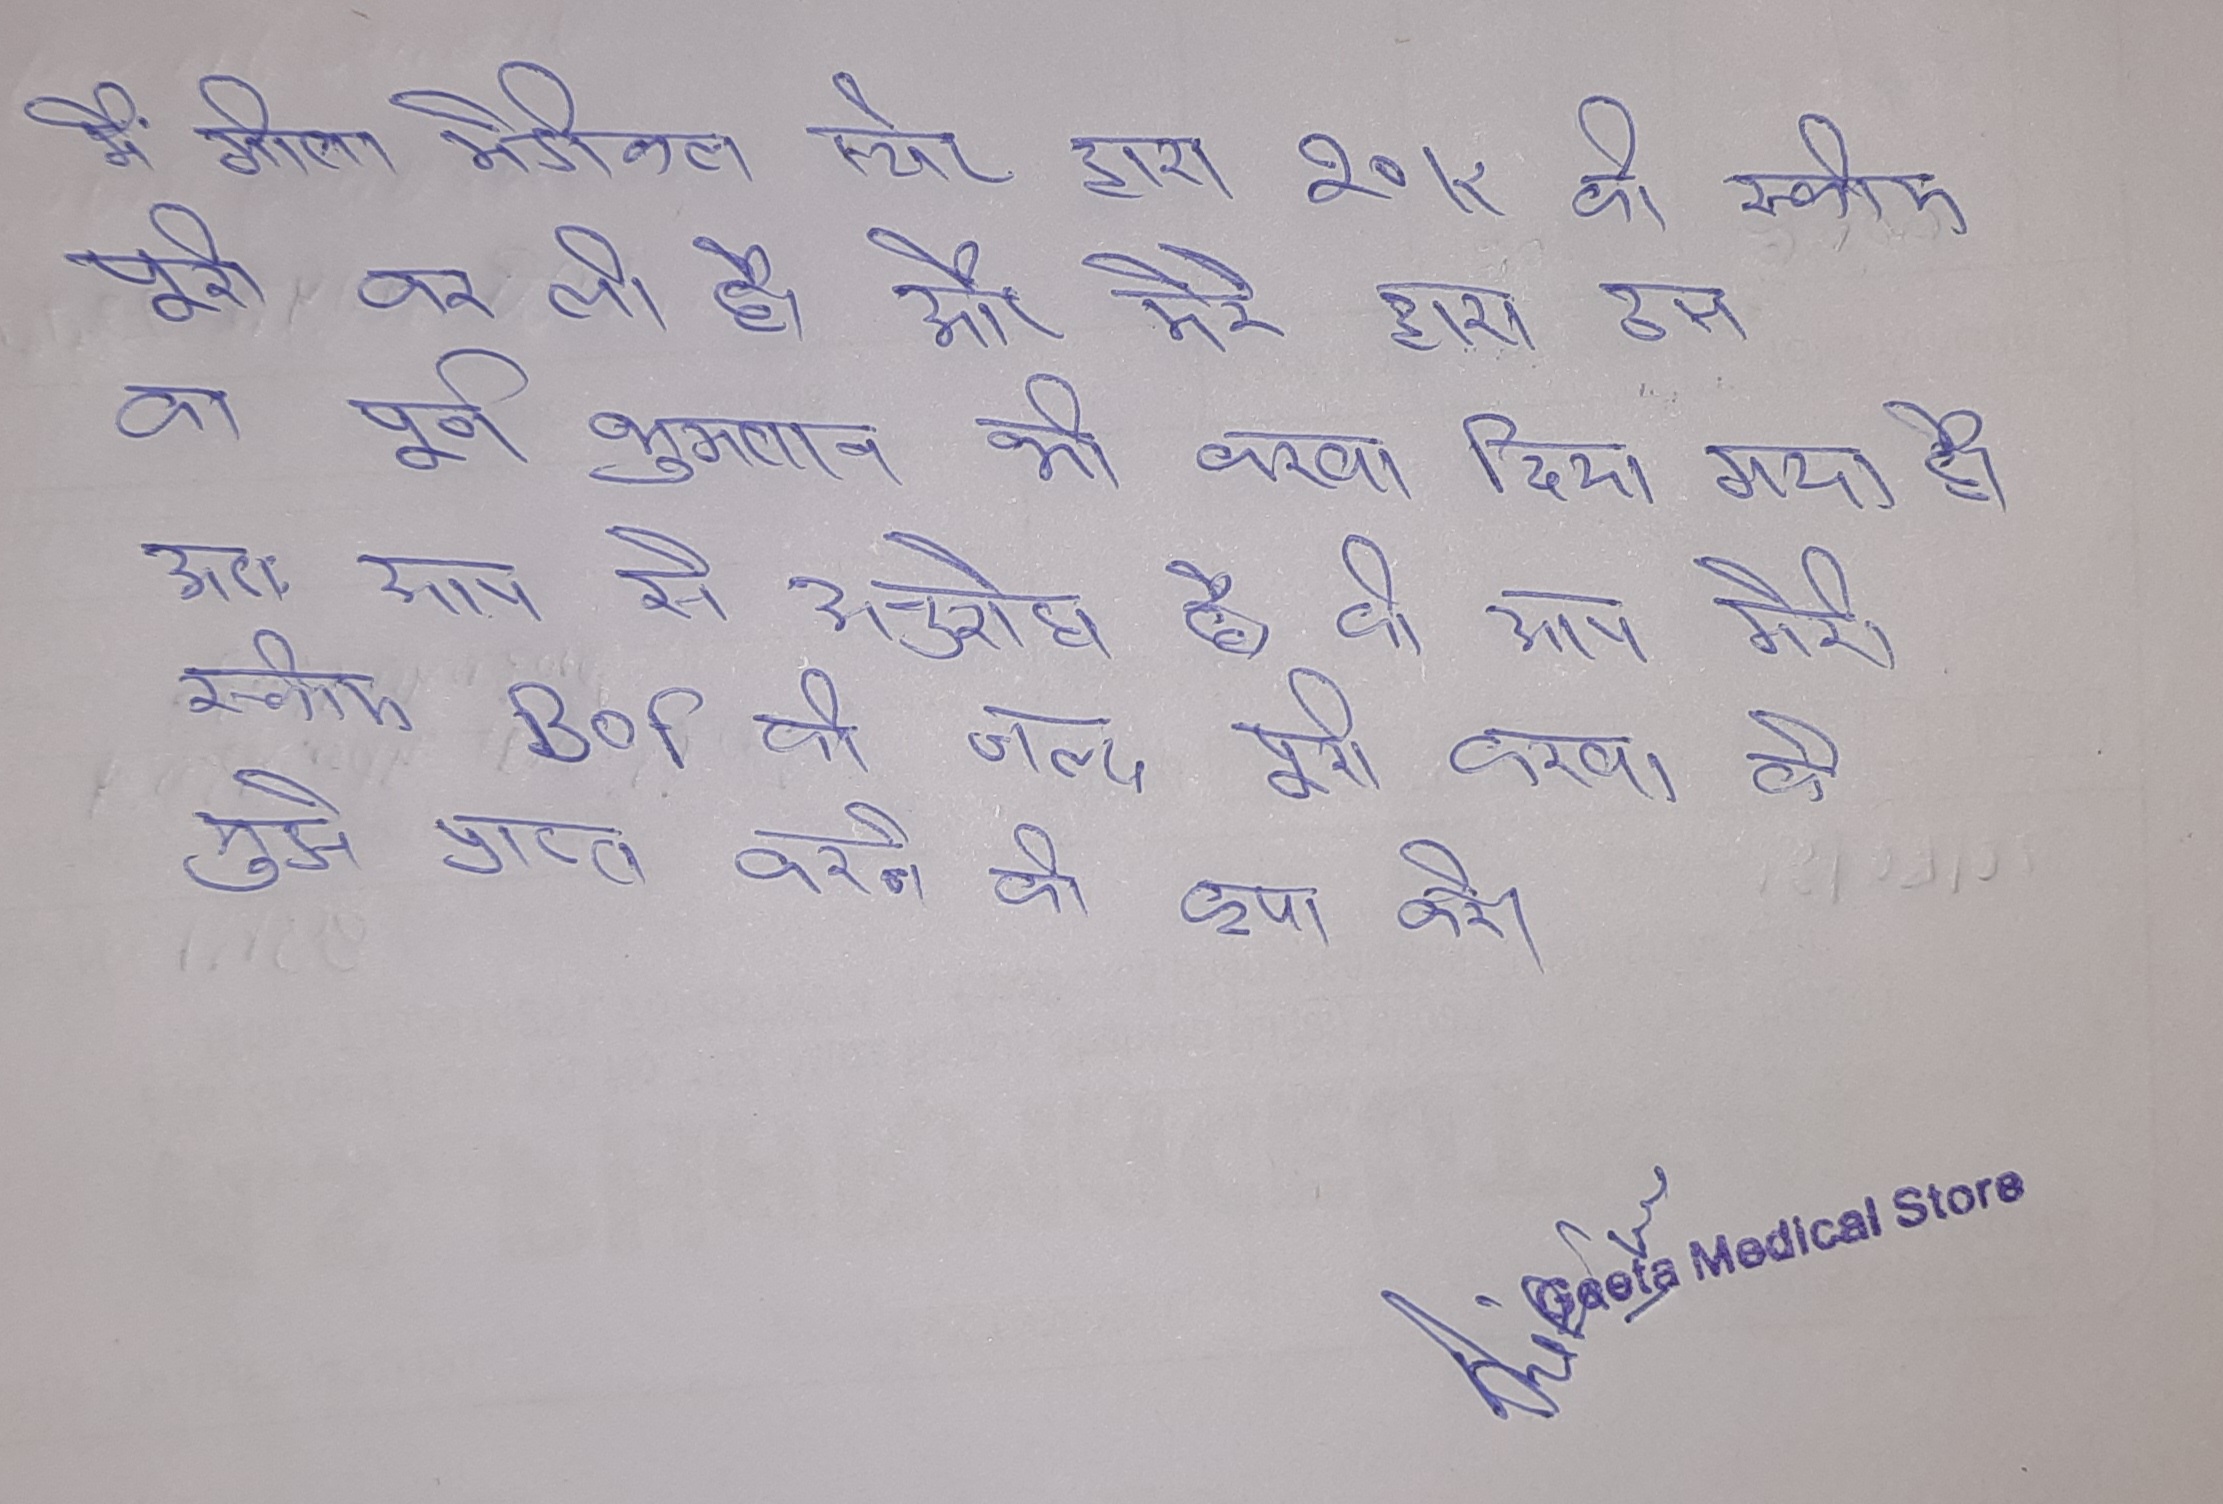 मैं गीता मेडीकल स्टोर द्वारा 20K की स्कीम
पूरी कर ली है। और मेरे द्वारा उस
का पूर्न भुगतान भी करवा दिया गया है।
अतः आप से अनुरोध है की आप मेरी
स्कीम BOF की जल्द पूरी करवा के
मुझे प्राप्त करने की कृपा करे।
Geeta Medical Store